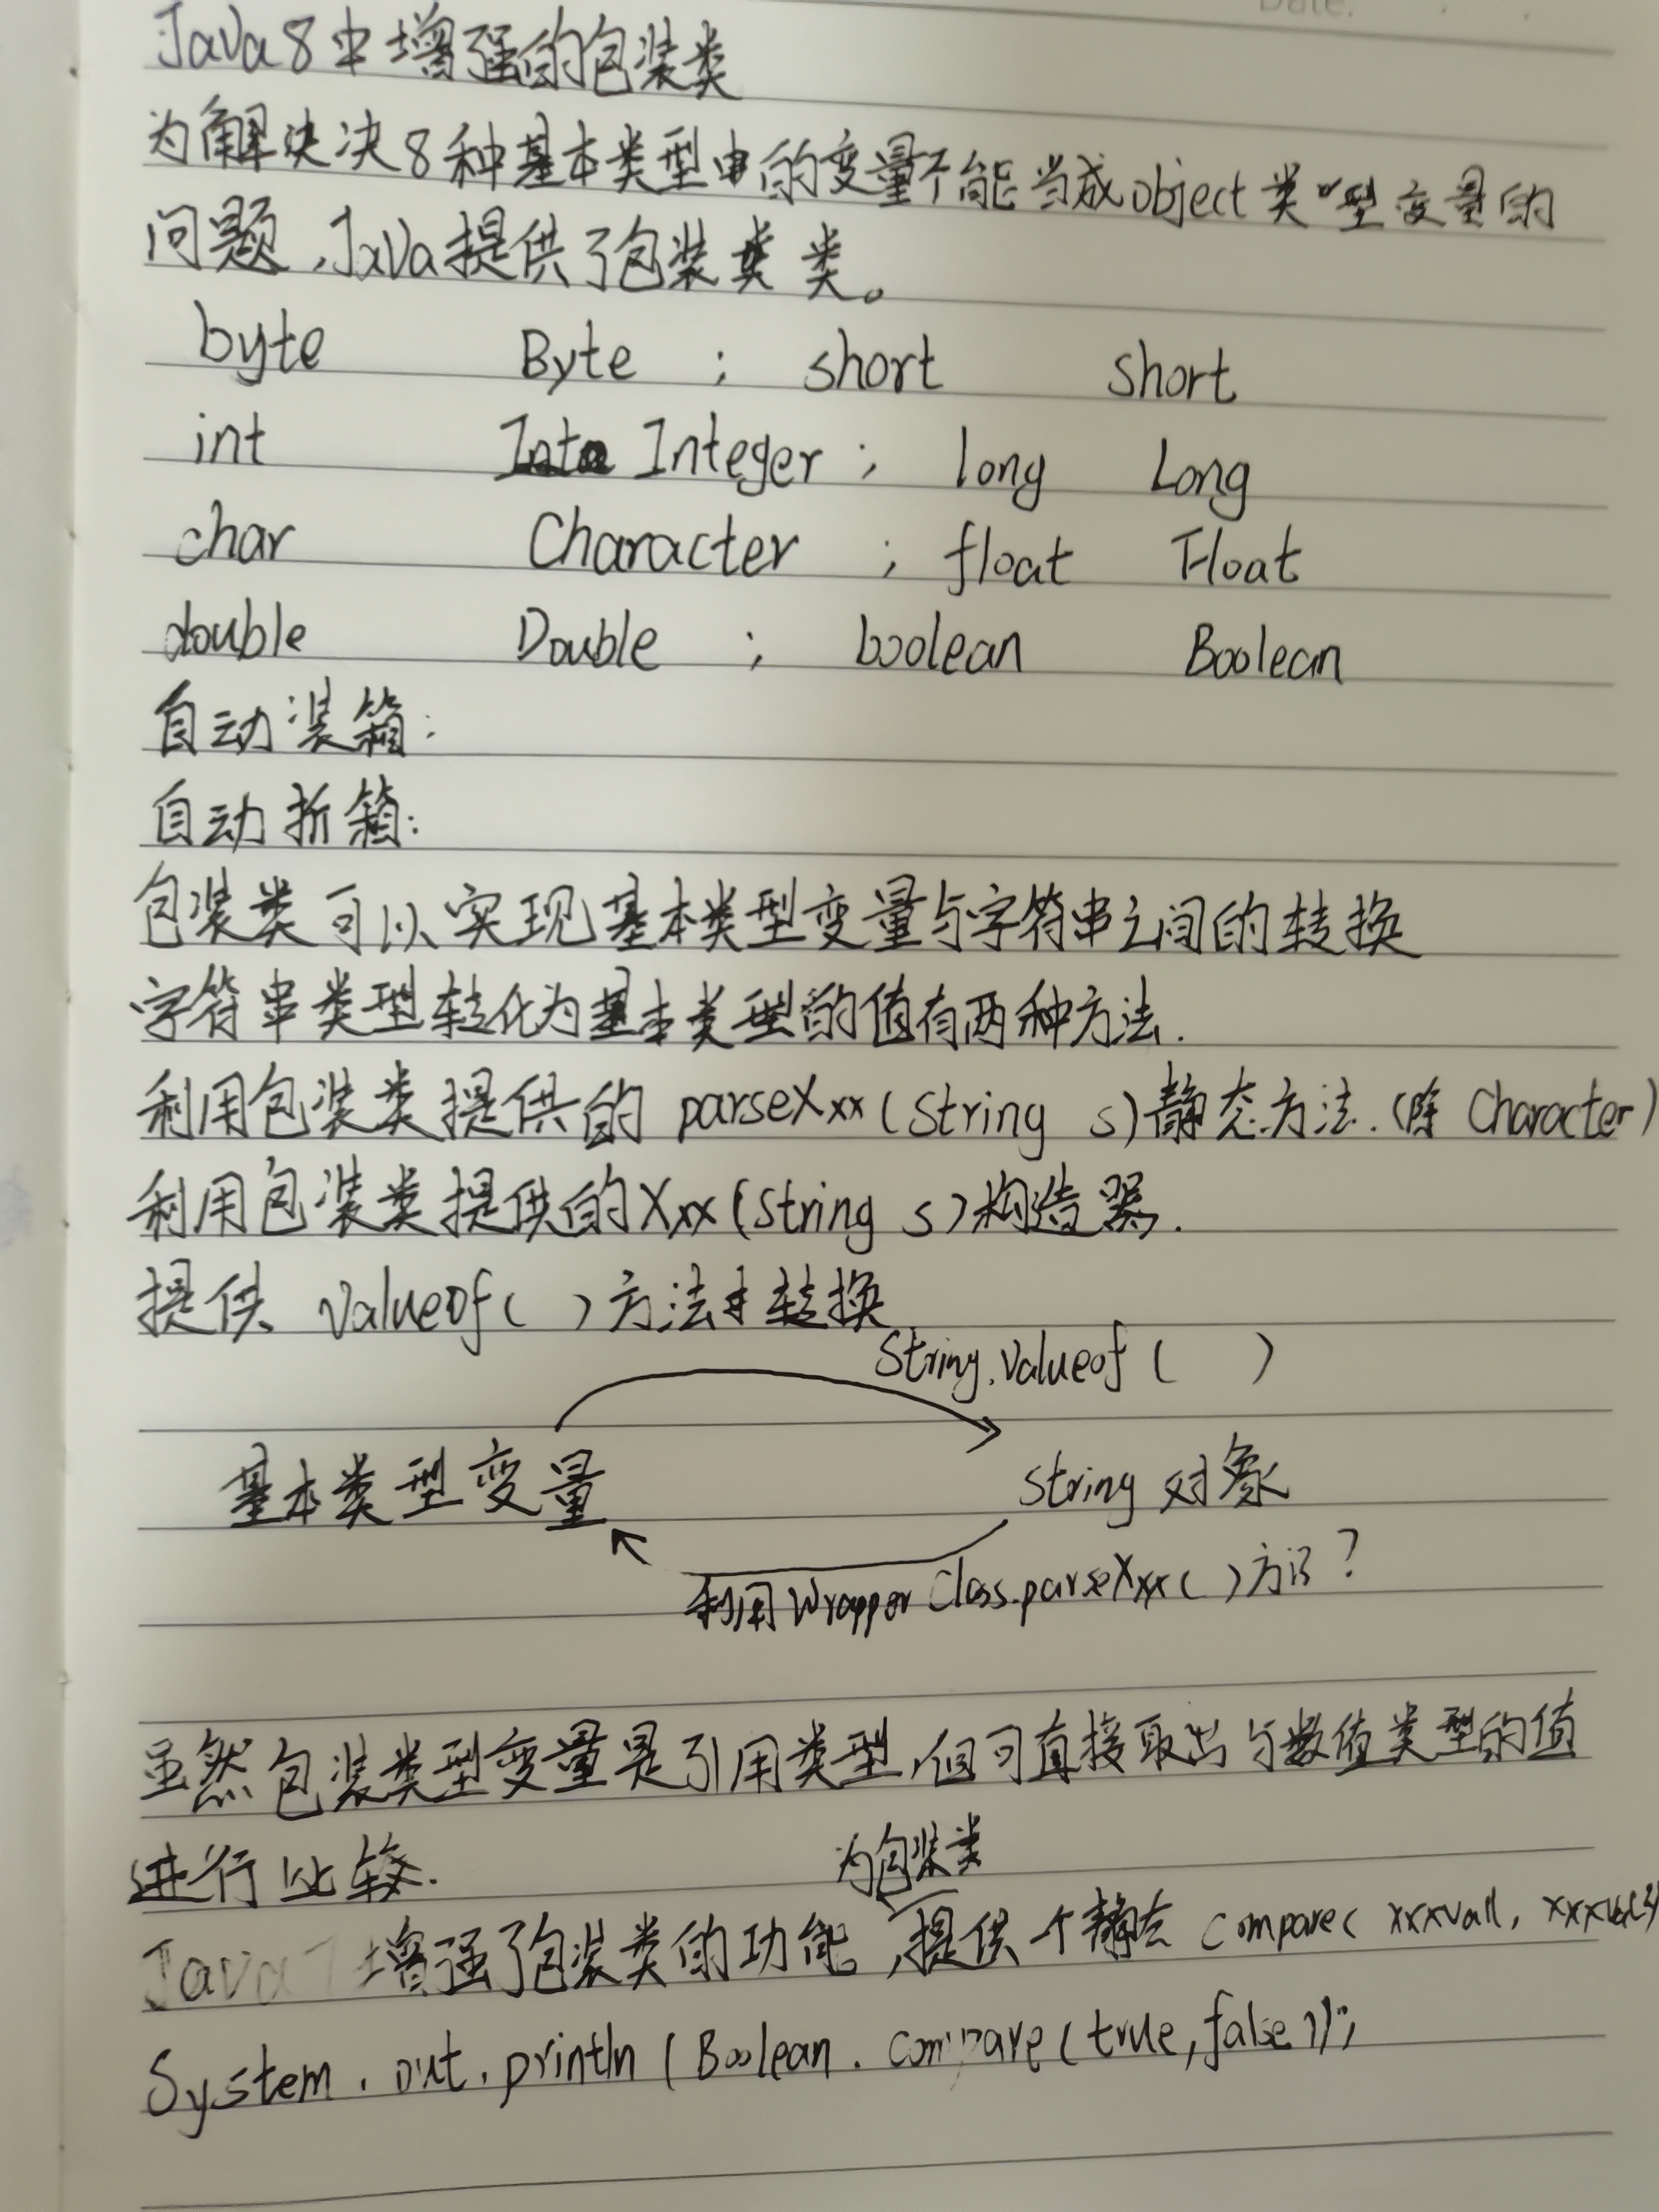 Date:
Java8中增强的包装类
为解决决8种基本类型中的变量不能当成object类型变量的
问题,Java提供了包装类类。
byte Byte ; short Short
int Integer ; long Long
char Character ; float Float
double Double ; boolean Boolean
自动装箱:
自动折箱:
包装类可以实现基本类型变量与字符串之间的转换
字符串类型转化为基本类型的值有两种方法.
利用包装类提供的 parseXxx(String s)静态方法.(除 Character)
利用包装类提供的Xxx(String s)构造器.
提供 valueof( )方法来转换
String.valueof( )
基本类型变量 String 对象
利用Wrapper Class.parseXxx( )方?
虽然包装类型变量是引用类型,但可直接取出与数值类型的值
进行比较.
为包装类
Java7增强了包装类的功能,提供个静态 compare( xxxval1, xxxval2)
System.out.println(Boolean.compare(true,false));